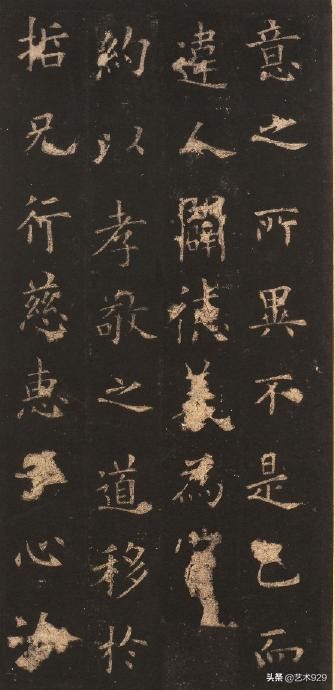 意之所異不是己而
違人闢德義為
約以孝敬之道移於
哲兄行慈惠心
头条 @艺术929